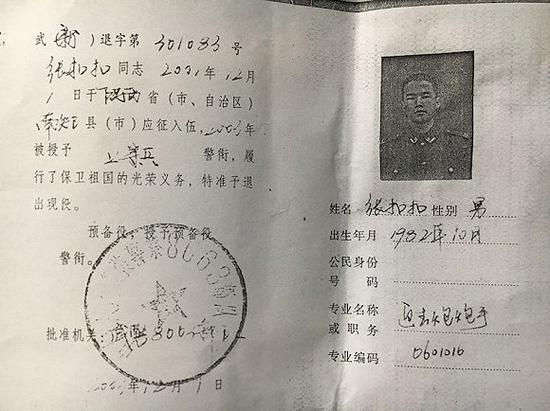 武(新)退字第 301083 号
张扣扣同志 2001年12月
1 日于陕西省（市、自治区）
南郑县（市）应征入伍，2003年
被授予 上等兵 警衔，履
行了保卫祖国的光荣义务，特准予退
出现役。
预备役，授予预备役
警衔。
批准机关：
12月1日
姓名 张扣扣 性别 男
出生年月 1982年10月
公民身份
号 码
专业名称 迫击炮炮手
或职务
专业编码 0601010